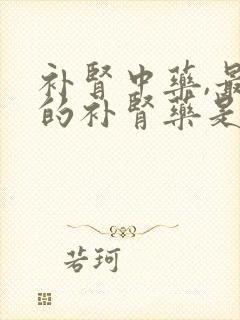 补肾中药,最
的补肾药是
若珂